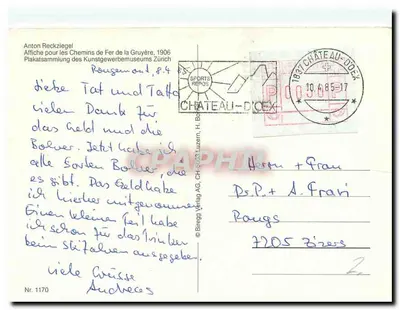 Anton Reckziegel
Affiche pour les Chemins de Fer de la Gruyère, 1906
Plakatsammlung des Kunstgewerbemuseums Zürich
Rougemont, 8.4.85
Liebe Tat und Tatta
vielen Dank für
das Geld und die
Bohner. Jetzt habe ich
alle Sorten Bohner, die
es gibt. Das Geld habe
ich hierher mitgenommen
Einen kleinen Teil habe
ich schon für das Trinken
beim Skifahren ausgegeben.
Viele Grüsse
Andreas
Nr. 1170
© Biregg Verlag AG, CH Luzern, H. Bo
SPORTS
REPOS
CHATEAU-D'OEX
1837 CHÂTEAU-D'OEX
10.4.85-17
Herrn + Frau
Dr. P. + A.
7205 Zizers
2.
PRCphila